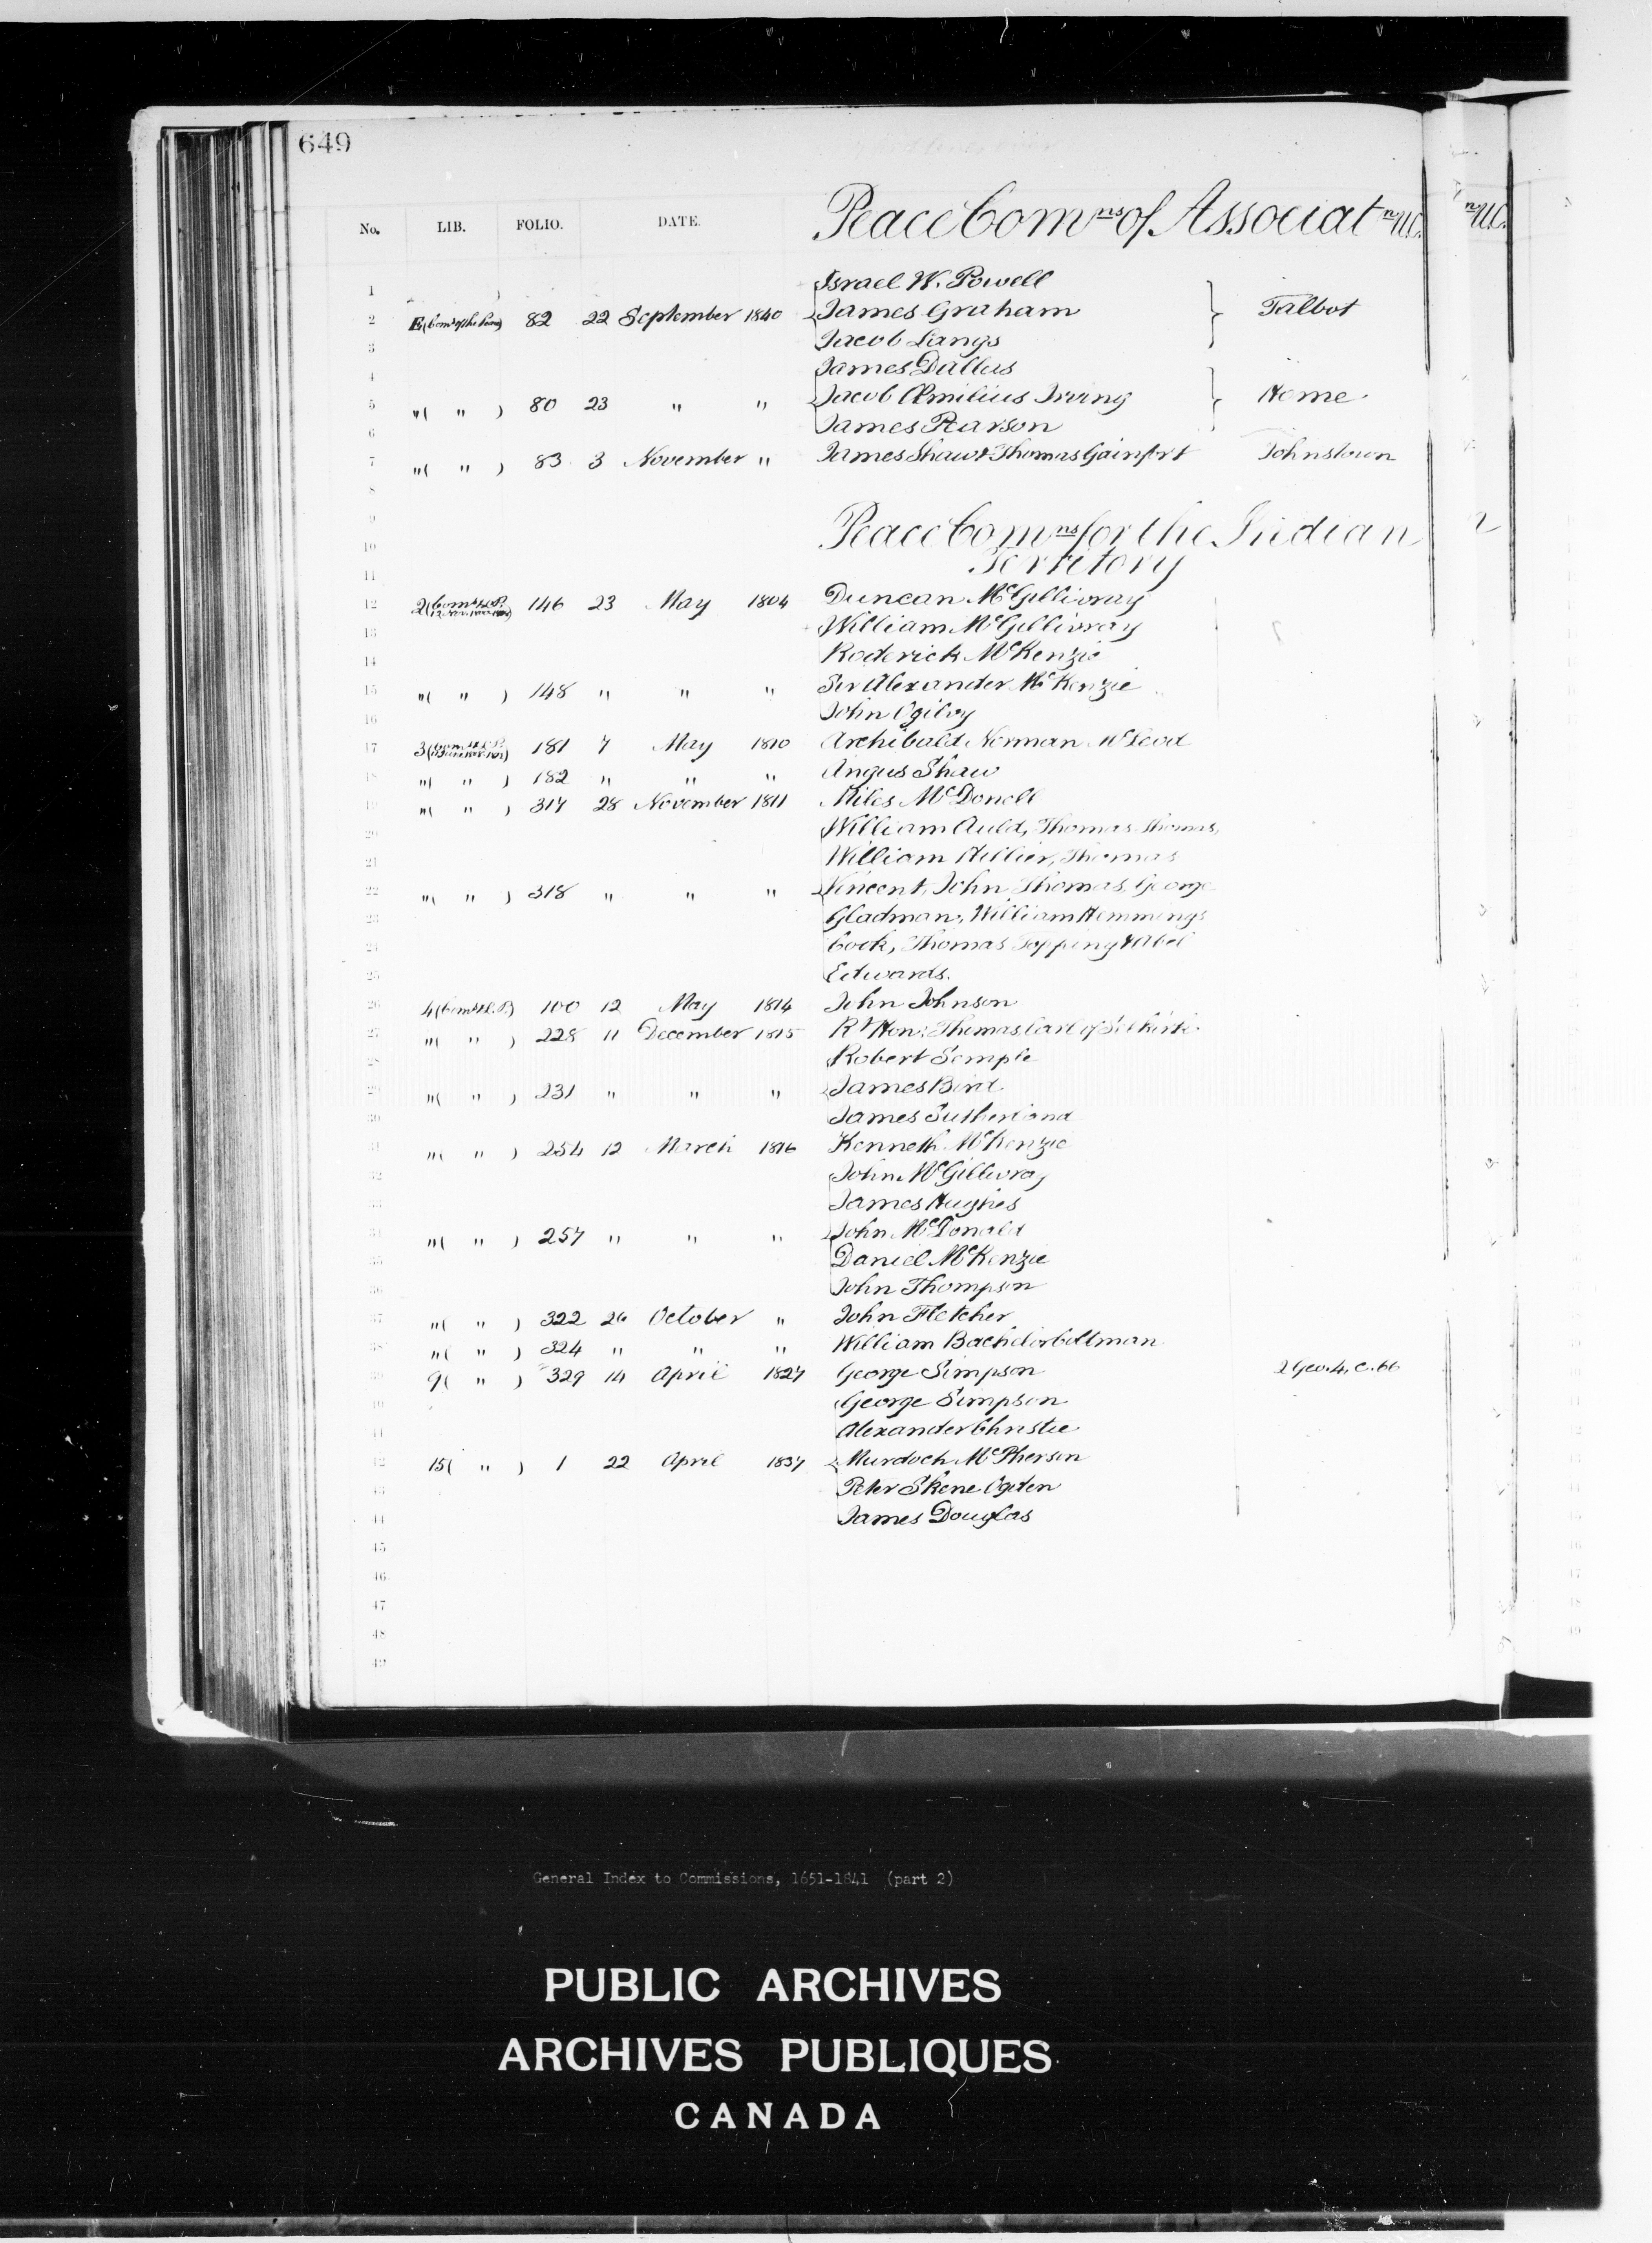 649
No. LIB. FOLIO. DATE. Peace Comns of Associatn U.C.
1 Israel W. Powell
2 E (Comns of the Peace) 82 22 September 1840 James Graham } Talbot
3 Jacob Langs
4 James Dallas
5 " ( " ) 80 23 " " Jacob Æmilius Irving } Home
6 James Pearson
7 " ( " ) 83 3 November " James Shaw & Thomas Gainfort Johnstown
8
9 Peace Comns for the Indian
10 Territory
11
12 2 ( 146 23 May 1804 Duncan McGillivray
13 William McGillivray
14 Roderick McKenzie
15 " ( " ) 148 " " " Sir Alexander McKenzie
16 John Ogilvy
17 3 ( 181 7 May 1810 Archibald Norman McLeod
18 " ( " ) 182 " " " Angus Shaw
19 " ( " ) 317 28 November 1811 Miles McDonell
20 William Auld, Thomas Thomas,
21 William Hillier, Thomas
22 " ( " ) 318 " " " Vincent, John Thomas, George
23 Gladman, William Hemmings
24 Cook, Thomas Topping & Abel
25 Edwards.
26 4 ( 100 12 May 1814 John Johnson
27 " ( " ) 228 11 December 1815 Rt Hon: Thomas Earl of Selkirk
28 Robert Semple
29 " ( " ) 231 " " " James Bird
30 James Sutherland
31 " ( " ) 254 12 March 1816 Kenneth McKenzie
32 John McGillivray
33 James Hughes
34 " ( " ) 257 " " " John McDonald
35 Daniel McKenzie
36 John Thompson
37 " ( " ) 322 26 October " John Fletcher
38 " ( " ) 324 " " " William Bachelor Coltman
39 9 ( " ) 329 14 April 1827 George Simpson 2 Geo. 4, c. 66
40 George Simpson
41 Alexander Christie
42 15 ( " ) 1 22 April 1837 Murdoch McPherson
43 Peter Skene Ogden
44 James Douglas
45
46
47
48
49
General Index to Commissions, 1651-1841 (part 2)
PUBLIC ARCHIVES
ARCHIVES PUBLIQUES
CANADA